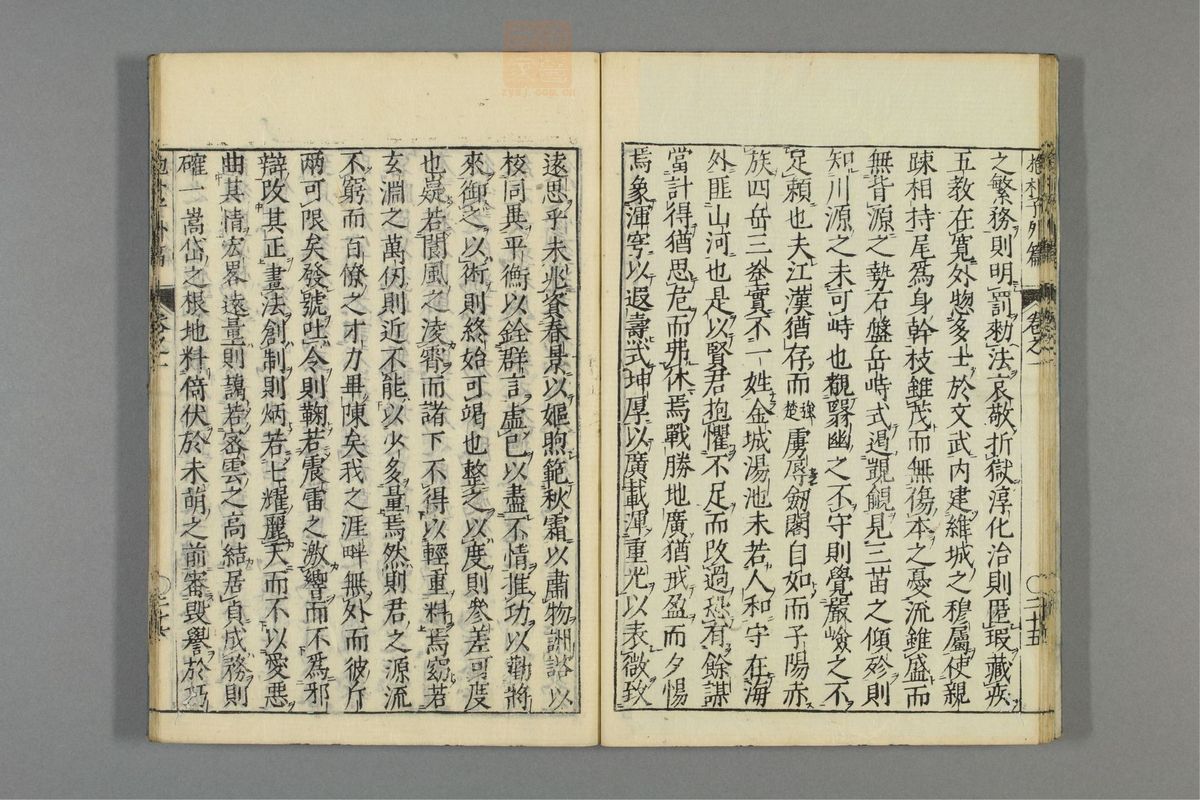 抱朴子外篇　卷之一　〇二十五
之繁務則明罰勑法哀敬折獄淳化治則匿瑕藏疾
五教在寛外惣多士於文武内建維城之穆屬使親
踈相持尾爲身幹枝雖茂而無傷本之憂流雖盛而
無背源之勢石盤岳峙式遏覬覦見三苗之傾殄則
知川源之未可恃也覩翳幽之不守則覺嚴嶮之不
足賴也夫江漢猶存而強楚虜辱劔閣自如而子陽赤
族四岳三塗實不一姓金城湯池未若人和守在海
外匪山河也是以賢君抱懼不足而改過恐有餘謀
當計得猶思危而弗休焉戰勝地廣猶戒盈而夕惕
焉象渾穹以遐壽式坤厚以廣載渾重光以表微致
遠思乎未兆資春景以嫗煦範秋霜以肅物詶諮以
校同異平衡以銓群言虚己以盡不情推功以勸將
來御之以術則終始可竭也整之以度則參差可度
也嶷若閬風之凌霄而諸下不得以輕重料焉窈若
玄淵之萬仭則近不能以少多量焉然則君之源流
不窮而百僚之才力畢陳矣我之涯畔無外而彼斤
兩可限矣發號吐令則輷若震雷之激響而不爲邪
辯改其正畫法創制則炳若七耀麗天而不以愛悪
曲其情宏畧遠量則靄若密雲之 結居貞成務則
確一嵩岱之根地料倚伏於未萌之前審毀譽於